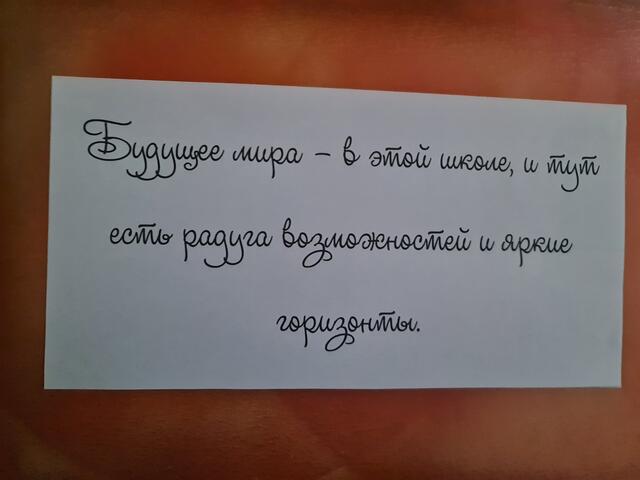 Будущее мира – в этой школе, и тут
есть радуга возможностей и яркие
горизонты.